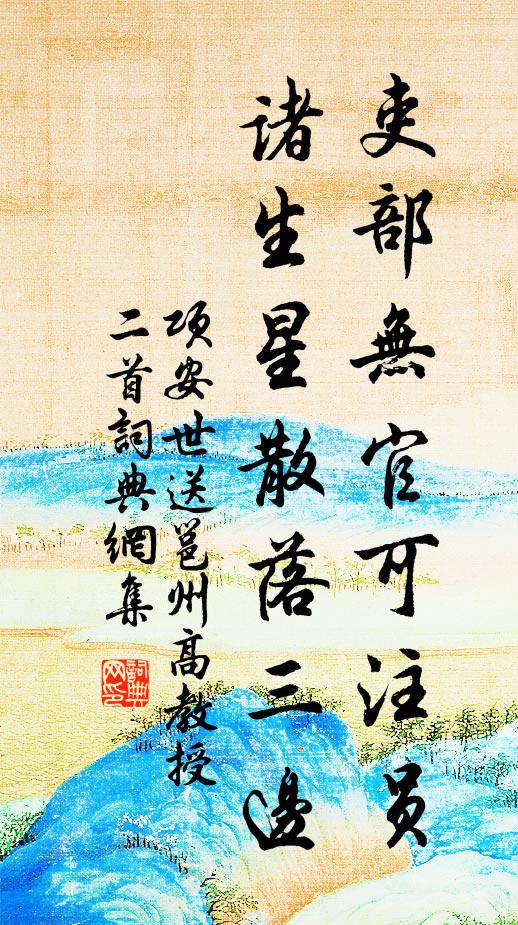 吏部無官可注员
诸生星散落三邊
项安世送邕州高教授
二首詞典網集
詞典网印